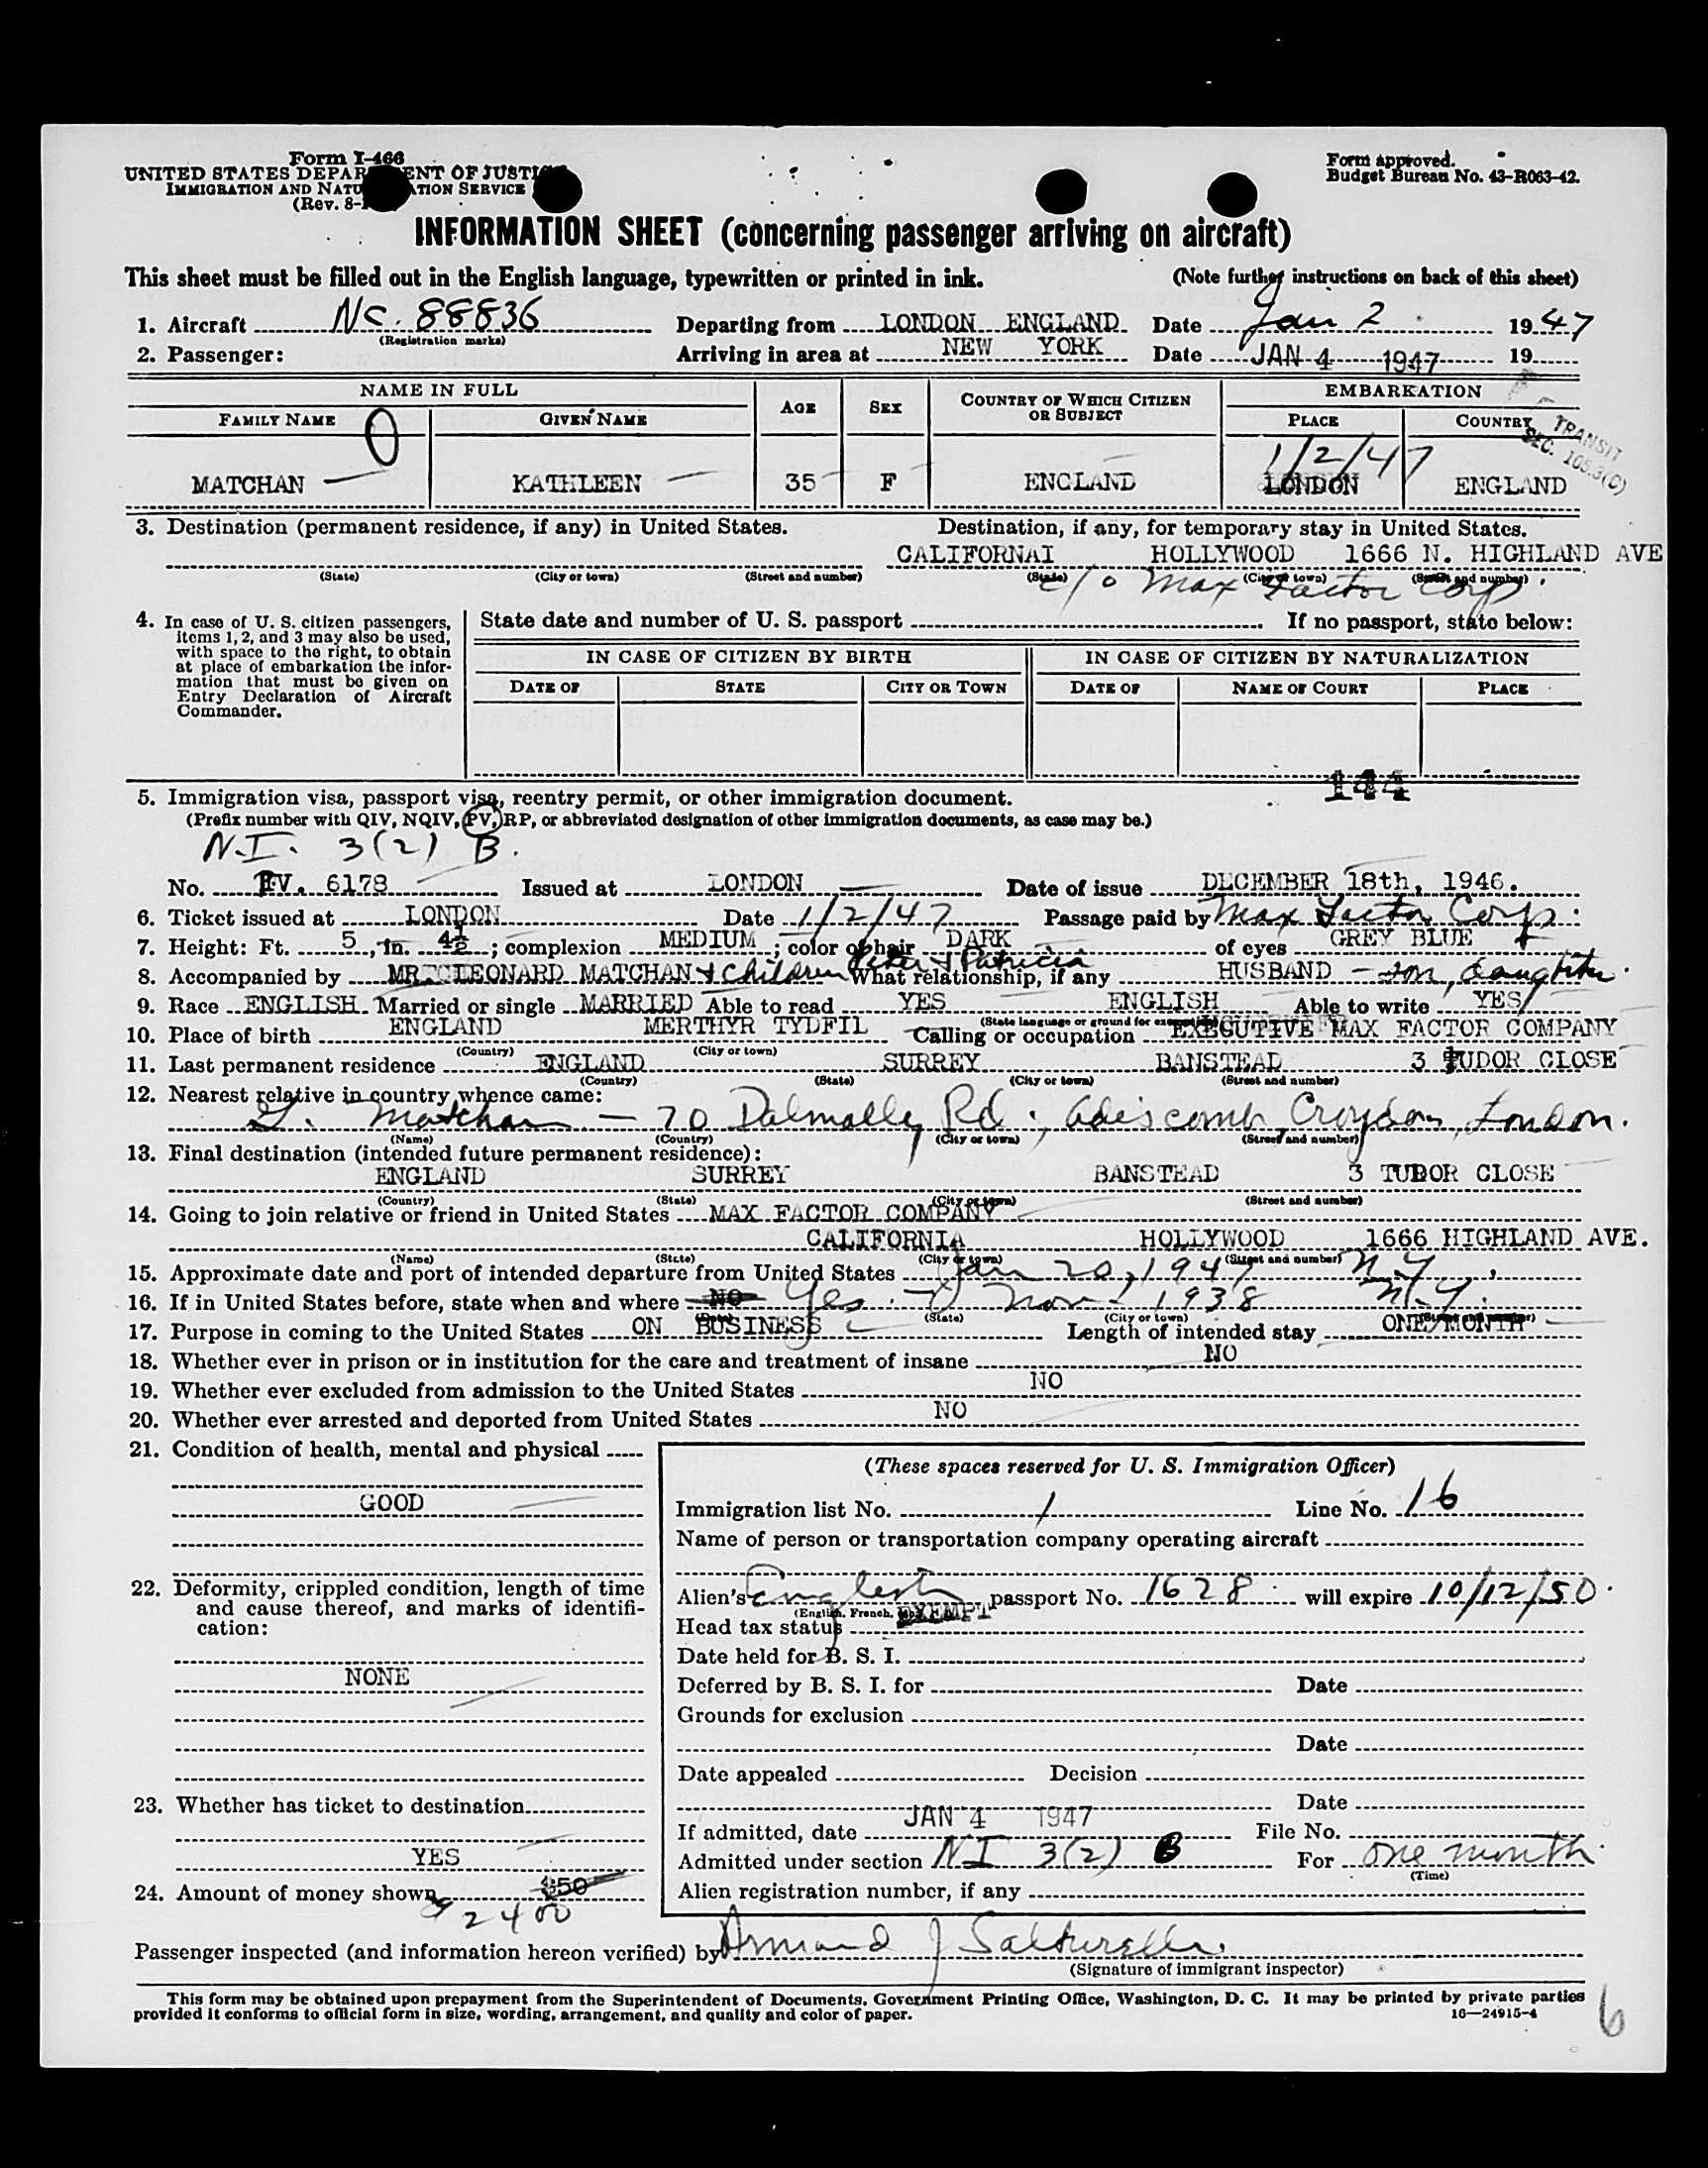 Form I-466
UNITED STATES DEPAR ENT OF JUSTI
IMMIGRATION AND NATU ATION SERVICE
(Rev. 8-
Form approved.
Budget Bureau No. 43-R063-42.
INFORMATION SHEET (concerning passenger arriving on aircraft)
This sheet must be filled out in the English language, typewritten or printed in ink. (Note further instructions on back of this sheet)
1. Aircraft NC. 88836 Departing from LONDON ENGLAND Date Jan 2 1947
(Registration marks)
2. Passenger: Arriving in area at NEW YORK Date JAN 4 1947 19
NAME IN FULL AGE SEX COUNTRY OF WHICH CITIZEN OR SUBJECT EMBARKATION
FAMILY NAME GIVEN NAME PLACE COUNTRY
TRANSIT
SEC. 105.3(C)
0
1/2/47
MATCHAN KATHLEEN 35 F ENGLAND LONDON ENGLAND
3. Destination (permanent residence, if any) in United States. Destination, if any, for temporary stay in United States.
CALIFORNAI HOLLYWOOD 1666 N. HIGHLAND AVE
(State) (City or town) (Street and number) (State) (City or town) (Street and number)
c/o Max Factor Corp
4. In case of U. S. citizen passengers, items 1, 2, and 3 may also be used, with space to the right, to obtain at place of embarkation the information that must be given on Entry Declaration of Aircraft Commander.
State date and number of U. S. passport If no passport, state below:
IN CASE OF CITIZEN BY BIRTH IN CASE OF CITIZEN BY NATURALIZATION
DATE OF STATE CITY OR TOWN DATE OF NAME OF COURT PLACE
144
5. Immigration visa, passport visa, reentry permit, or other immigration document.
(Prefix number with QIV, NQIV, PV, RP, or abbreviated designation of other immigration documents, as case may be.)
N.I. 3(2) B.
No. PV. 6178 Issued at LONDON Date of issue DECEMBER 18th, 1946.
6. Ticket issued at LONDON Date 1/2/47 Passage paid by Max Factor Corp.
7. Height: Ft. 5, in. 4½; complexion MEDIUM; color of hair DARK of eyes GREY BLUE
8. Accompanied by MR. LEONARD MATCHAN + Children Peter + Patricia What relationship, if any HUSBAND - son, daughter.
9. Race ENGLISH Married or single MARRIED Able to read YES ENGLISH Able to write YES
(State language or ground for exemption)
10. Place of birth ENGLAND MERTHYR TYDFIL Calling or occupation EXECUTIVE MAX FACTOR COMPANY
(Country) (City or town)
11. Last permanent residence ENGLAND SURREY BANSTEAD 3 TUDOR CLOSE
(Country) (State) (City or town) (Street and number)
12. Nearest relative in country whence came:
Matchan - 70 Dalmally Rd., Adiscomb, Croydon, London.
(Name) (Country) (City or town) (Street and number)
13. Final destination (intended future permanent residence):
ENGLAND SURREY BANSTEAD 3 TUDOR CLOSE
(Country) (State) (City or town) (Street and number)
14. Going to join relative or friend in United States MAX FACTOR COMPANY
CALIFORNIA HOLLYWOOD 1666 HIGHLAND AVE.
(Name) (State) (City or town) (Street and number)
15. Approximate date and port of intended departure from United States Jan 20, 1947 N.Y.
16. If in United States before, state when and where NO Yes - Nov 1938 N.Y.
(State) (City or town) (Street and number)
17. Purpose in coming to the United States ON BUSINESS Length of intended stay ONE MONTH
18. Whether ever in prison or in institution for the care and treatment of insane NO
19. Whether ever excluded from admission to the United States NO
20. Whether ever arrested and deported from United States NO
21. Condition of health, mental and physical
GOOD
22. Deformity, crippled condition, length of time and cause thereof, and marks of identification:
NONE
23. Whether has ticket to destination
YES
24. Amount of money shown $50
$2400
(These spaces reserved for U. S. Immigration Officer)
Immigration list No. 1 Line No. 16
Name of person or transportation company operating aircraft
Alien's English passport No. 1628 will expire 10/12/50.
(English, French, etc.)
Head tax status EXEMPT
Date held for B. S. I.
Deferred by B. S. I. for Date
Grounds for exclusion
Date
Date appealed Decision
Date
If admitted, date JAN 4 1947 File No.
Admitted under section NI 3(2) B For one month.
(Time)
Alien registration number, if any
Passenger inspected (and information hereon verified) by Armand J
(Signature of immigrant inspector)
This form may be obtained upon prepayment from the Superintendent of Documents, Government Printing Office, Washington, D. C. It may be printed by private parties
provided it conforms to official form in size, wording, arrangement, and quality and color of paper. 16—24915-4
6